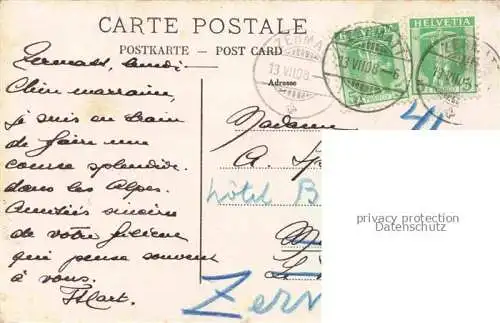 CARTE POSTALE
POSTKARTE - POST CARD
Adresse
HELVETIA
HELVETIA
ZERMA
13 VII 08
13 VII 08 - 6
5
Zermatt, lundi
Chère marraine,
je suis en train
de faire une
course splendide
dans les Alpes.
Amitiés sincères
de votre filleul
qui pense souvent
à vous.
Madame
A.
hôtel B
Zer
privacy protection
Datenschutz